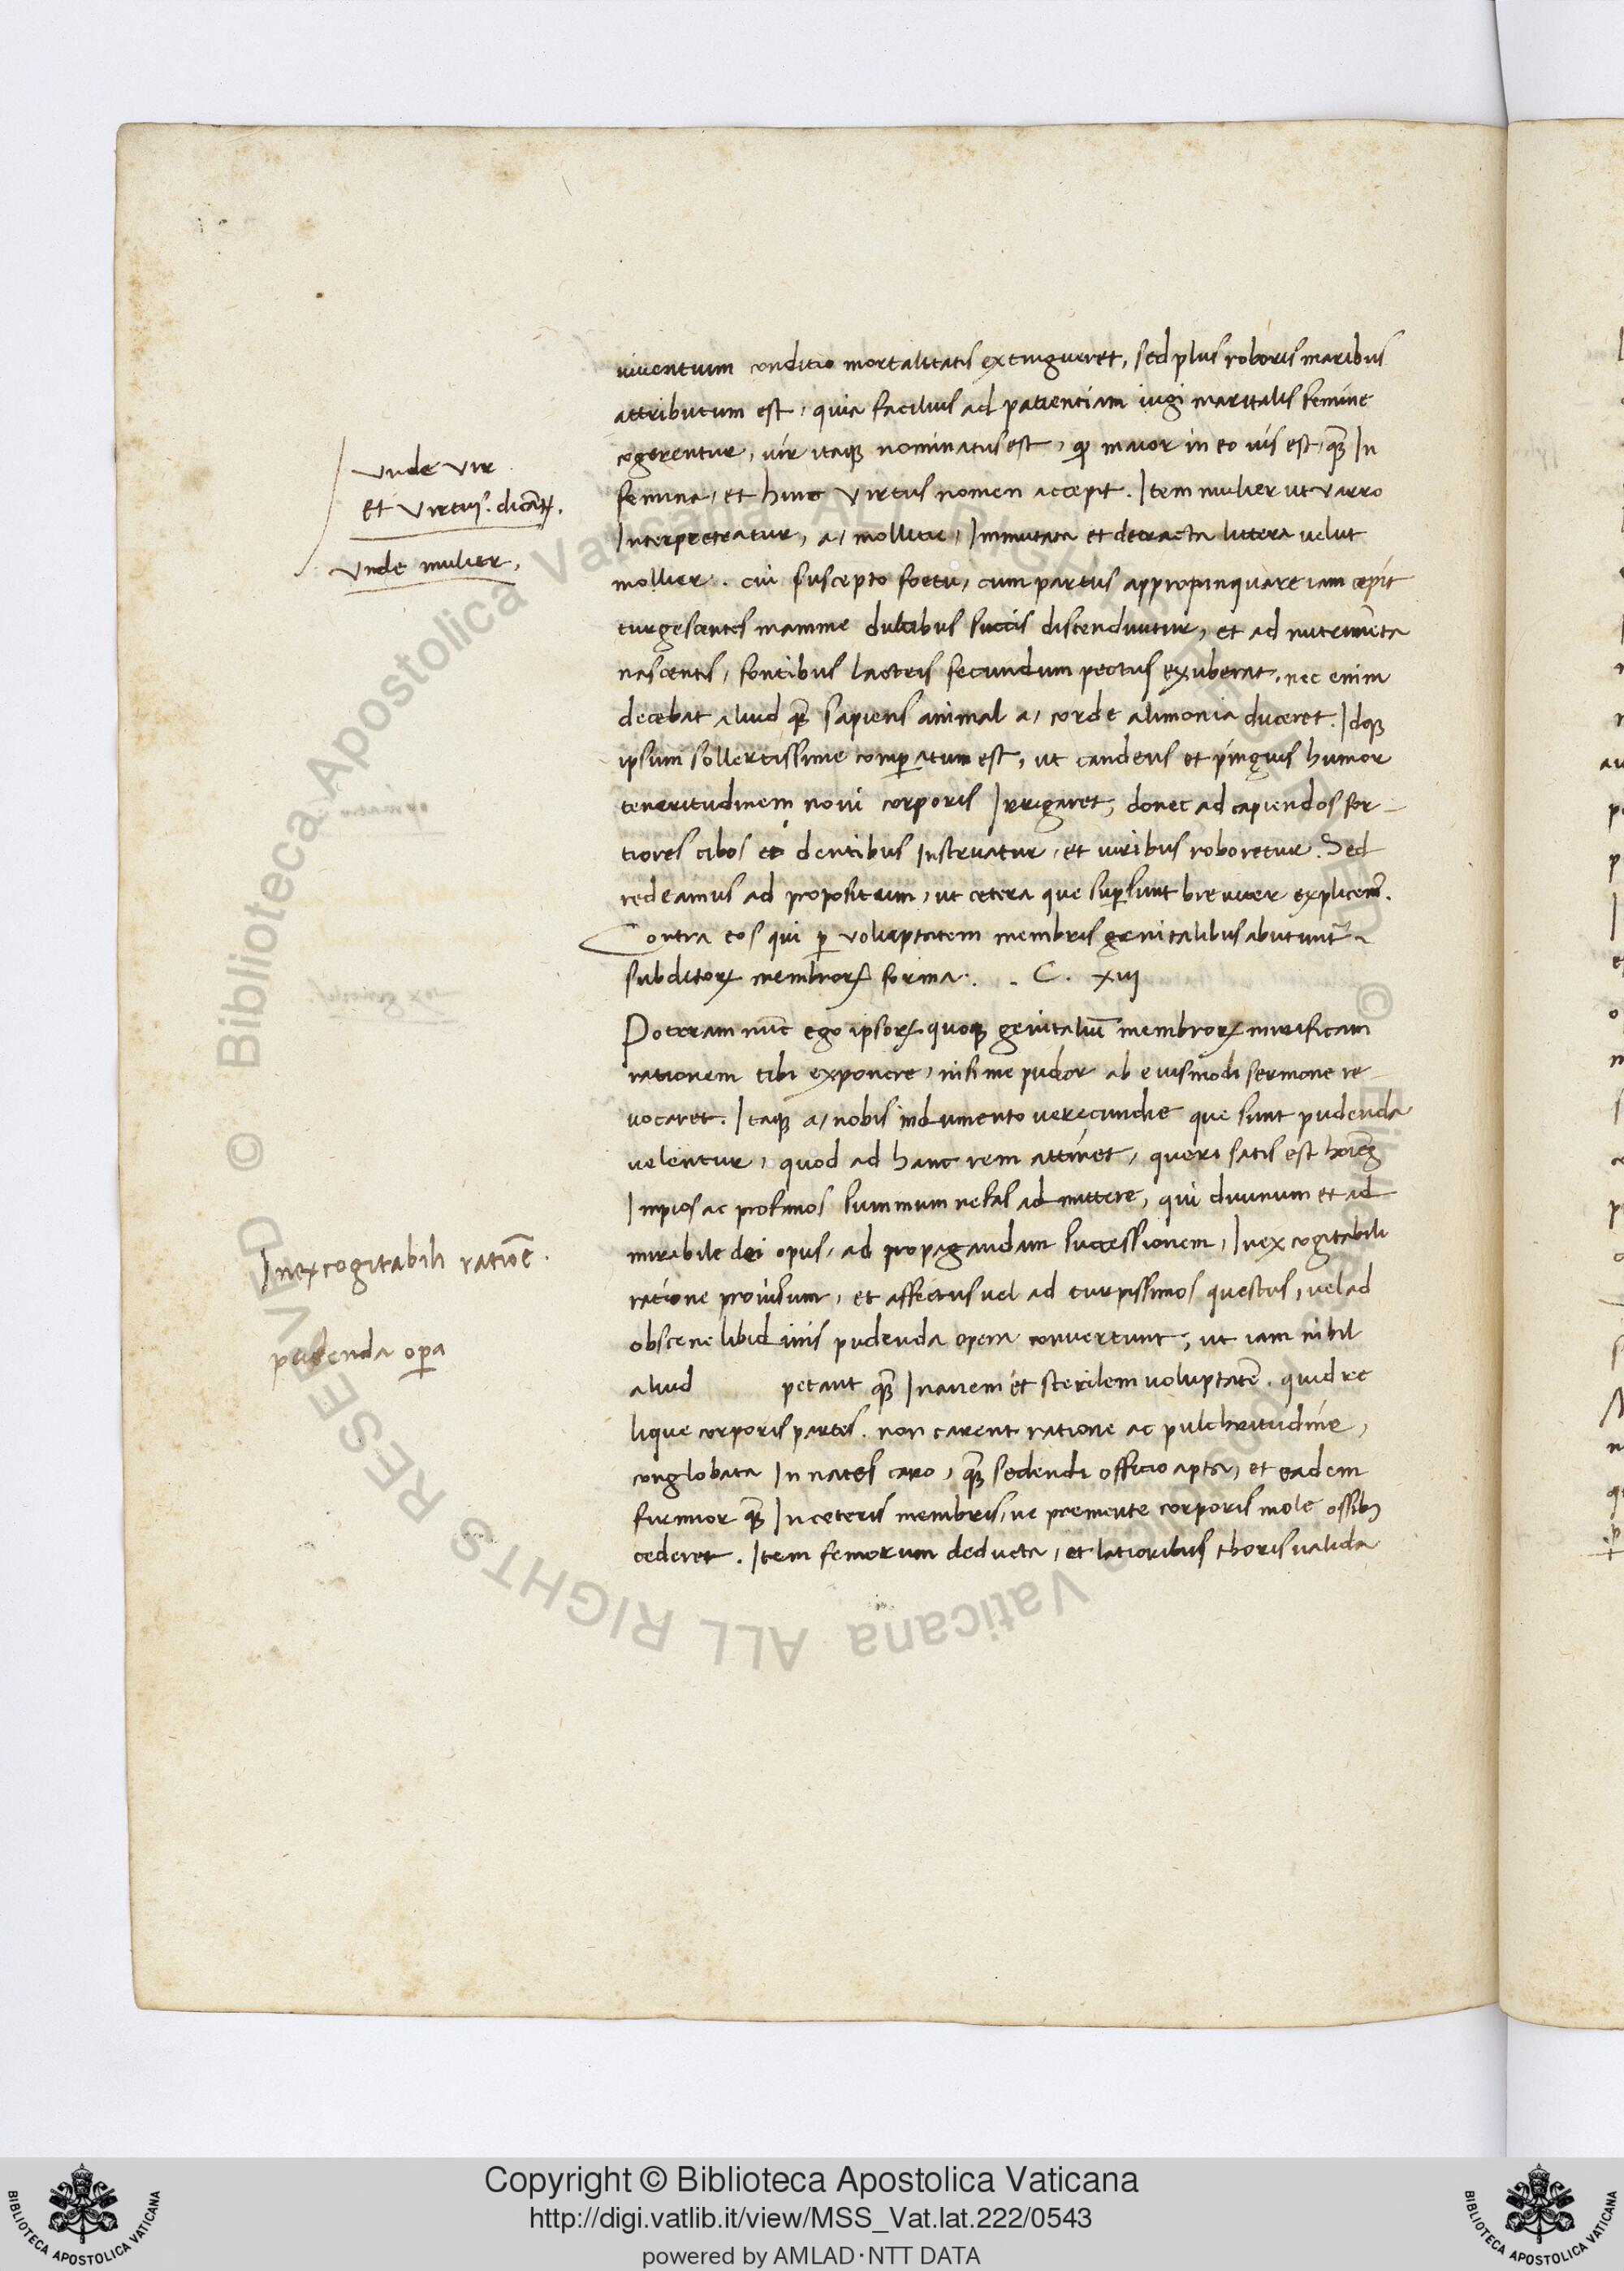 viventium conditio mortalitatis extingueret, sed plus roboris maribus
attributum est, quia facilius ad patientiam iugi maritalis femine
cogerentur, vir itaqꝫ nominatus est, qꝫ maior in eo vis est, qꝫ̃ In
femina, et hinc virtus nomen accepit. Item mulier ut varro
Interpretatur, a, mollitie, Immutata et detracta littera velut
mollier. cui suscepto foetu, cum partus appropinquare iam cepit
turgescentes mamme dulcibus succis distenduntur, et ad nutrimẽta
nascentis, fontibus lacteis fecundum pectus exuberat, nec enim
decebat aliud qꝫ̃ sapiens animal a, corde alimonia duceret. Idqꝫ
ipsum sollertissime comꝑatum est, ut candens et pinguis humor
teneritudinem novi corporis Irrigaret, donec ad capiendos for-
tiores cibos et dentibus Instruatur, et viribus roboretur. Sed
redeamus ad propositum, ut cetera que suꝑsunt breviter explicem9.
Contra eos qui ꝑ voluptatem membris genitalibus abutunt~
subditoꝝ membroꝝ forma. . C. xiij
Poteram nũc ego ipsoꝝ quoqꝫ genitaliũ membroꝝ mirificam
rationem tibi exponere, nisi me pudor ab eiusmodi sermone re-
vocaret. Itaqꝫ a, nobis indumento verecundie que sunt pudenda
velentur, quod ad hanc rem attinet, queri satis est hoĩes
Impios ac profanos summum nefas admittere, qui divinum et ad
mirabile dei opus, ad propagandam successionem, Inexcogitabili
ratione provisum, et affectus vel ad turpissimos questus, vel ad
obscene libidinis pudenda opera convertunt, ut iam nihil
aliud petant qꝫ̃ Inanem et sterilem voluptatẽ. quid re
lique corporis partes. non carent ratione ac pulchritudine,
conglobata In nates caro, qꝫ̃ sedendi officio apta, et eadem
firmior qꝫ̃ In ceteris membris, ne premente corporis mole ossibꝫ
cederet. Item femorum deducta, et latioribus thoris valida
Vnde vir
et virtus. dicãtꝝ.
Vnde mulier,
Inexcogitabili ratiõe.
pudenda oꝑa
Copyright © Biblioteca Apostolica Vaticana
http://digi.vatlib.it/view/MSS_Vat.lat.222/0543
powered by AMLAD·NTT DATA
BIBLIOTECA APOSTOLICA VATICANA
BIBLIOTECA APOSTOLICA VATICANA
© Biblioteca Apostolica Vaticana ALL RIGHTS RESERVED © Biblioteca Apostolica Vaticana ALL RIGHTS RESERVED